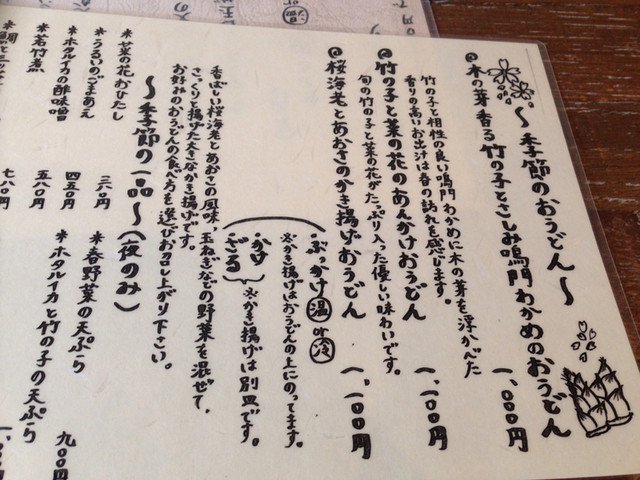 〜季節のおうどん〜
◎木の芽香る竹の子とさしみ鳴門わかめのおうどん
一、〇〇〇円
竹の子と相性の良い鳴門わかめに木の芽を浮かべた
香りの高いお出汁は春の訪れを感じます。
◎竹の子と菜の花のあんかけおうどん
一、一〇〇円
旬の竹の子と菜の花がたっぷり入った優しい味わいです。
◎桜海老とあおさのかき揚げおうどん
一、一〇〇円
ぶっかけ 温 or 冷
※かき揚げはおうどんの上にのってます。
かけ
ざる
※かき揚げは別皿です。
香ばしい桜海老とあおさの風味、玉ねぎなどの野菜を混ぜて、
さっくりと揚げた大きなかき揚げです。
お好みのおうどんの食べ方を選びお召し上がり下さい。
〜季節の一品〜(夜のみ)
*菜の花おひたし
三八〇円
*うるいのごまあえ
*ホタルイカの酢味噌
四五〇円
*若竹煮
五八〇円
七八〇円
*春野菜の天ぷら
九〇〇円
*ホタルイカと竹の子の天ぷら